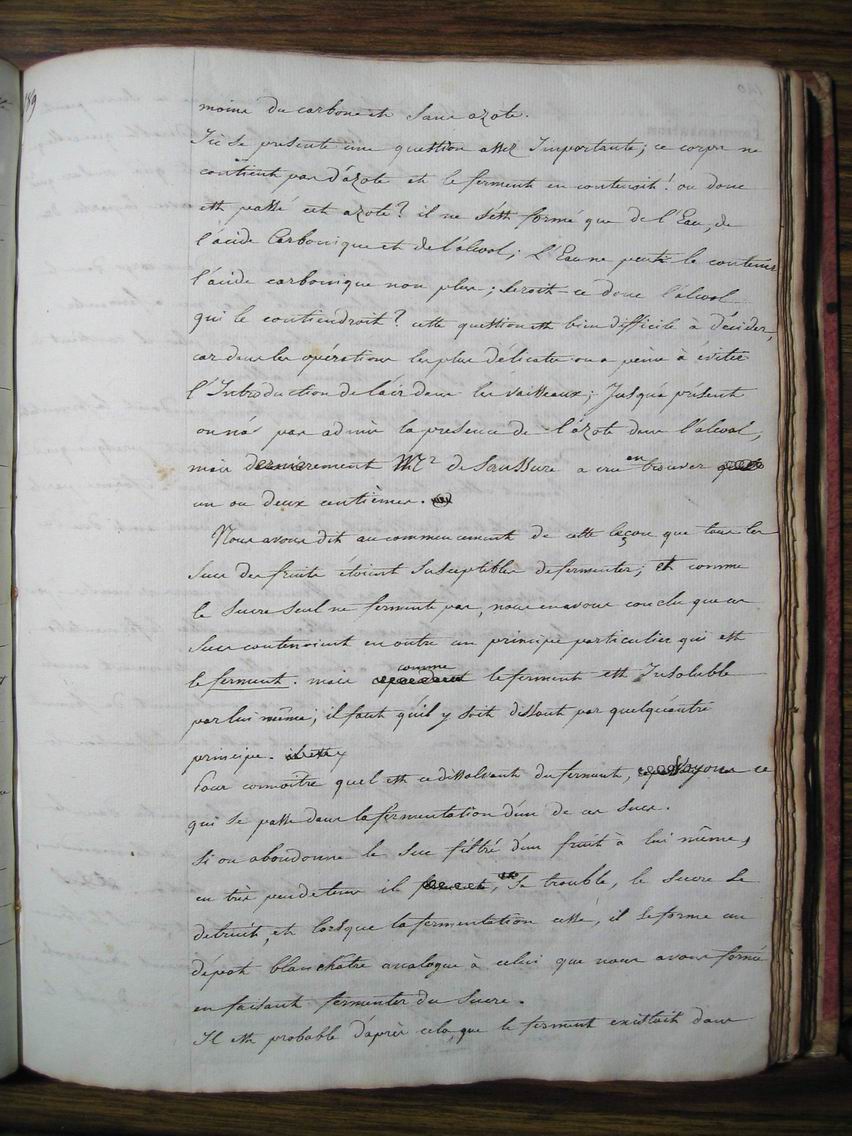 189
moins du carbone et sans azote.
Ici se presente une question assez Importante; ce corps ne
contient pas d'azote et le ferment en contenoit! ou donc
est passé cet azote? il ne s'est formé que de l'Eau, de
l'acide Carbonique et de l'alcool; L'Eau ne peut le contenir
l'acide carbonique non plus; seroit-ce donc l'alcool
qui le contiendroit? cette question est bien difficile à décider,
car dans les opérations les plus délicates on a peine à éviter
l'Introduction de l'air dans les vaisseaux; Jusqu'à présent
on n'a pas admis la presence de l'azote dans l'alcool,
mais dernierement Mr de Saussure a cru en trouver
un ou deux centièmes.
Nous avons dit au commencement de cette leçon que tous les
sucs des fruits étoient susceptibles de fermenter; et comme
le sucre seul ne fermente pas, nous en avons conclu que ces
sucs contenoient en outre un principe particulier qui est
le ferment. mais comme le ferment est Insoluble
par lui même; il faut qu'il y soit dissout par quelqu'autre
principe.
Pour connoître quel est ce dissolvant du ferment, voyons ce
qui se passe dans la fermentation d'un de ces sucs.
Si on abandonne le suc filtré d'un fruit à lui même,
en très peu de tems il se trouble, le sucre se
detruit, et lorsque la fermentation cesse, il se forme un
dépôt blanchâtre analogue à celui que nous avons formé
en faisant fermenter du sucre.
Il est probable d'après cela, que le ferment existoit dans